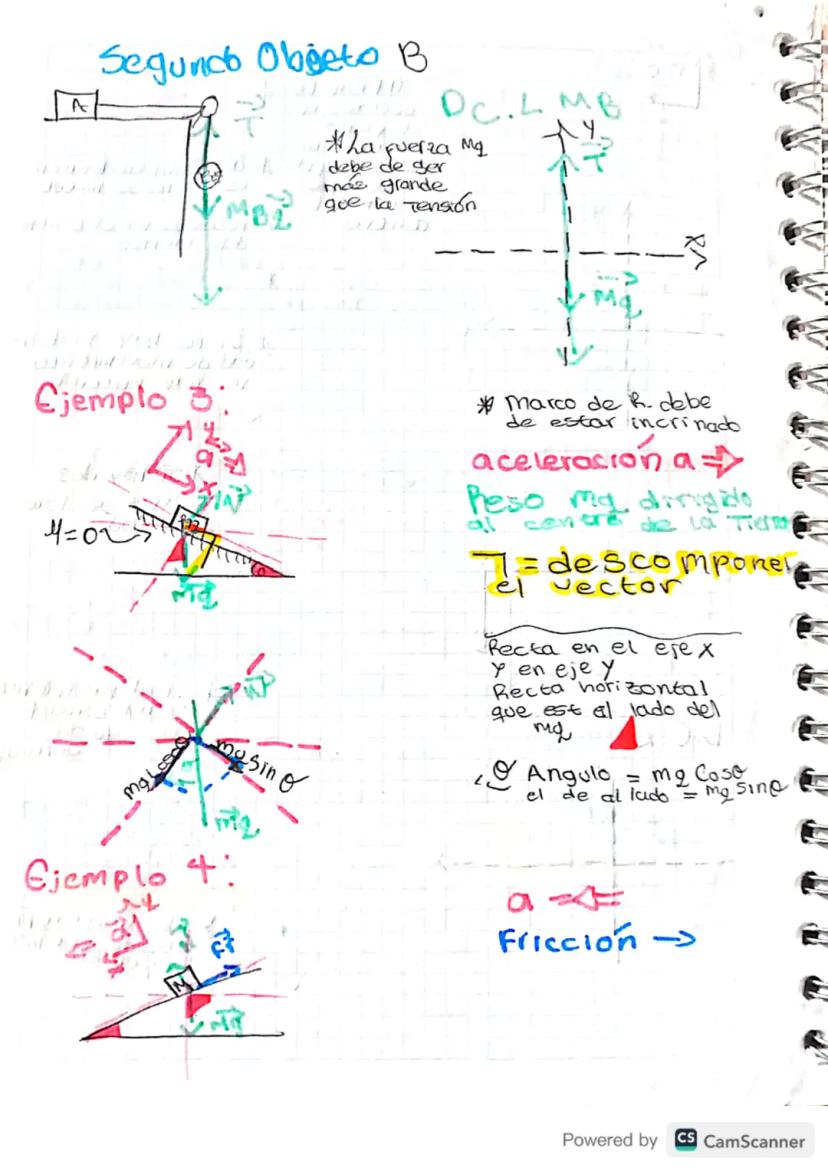 Segundo Objeto B
A
T
B
MBg
*La fuerza Mg
debe de ser
más grande
que la tensión
D.C.L MB
Y
T
X
Mg
Ejemplo 3:
Y
a
X
N
m
M=0
Mg
* Marco de R. debe
de estar incrinado
aceleración a
Peso mg dirigido
al centro de la Tierra
= descomponer
el vector
Recta en el eje x
y en eje y
Recta horizontal
que est al lado del
mg
θ Angulo = mg Cosθ
el de al lado = mg Sinθ
N
mg cosθ
mg sin θ
θ
mg
Ejemplo 4:
Y
a
x
Ff
M
Mg
a
Fricción →
Powered by CS CamScanner